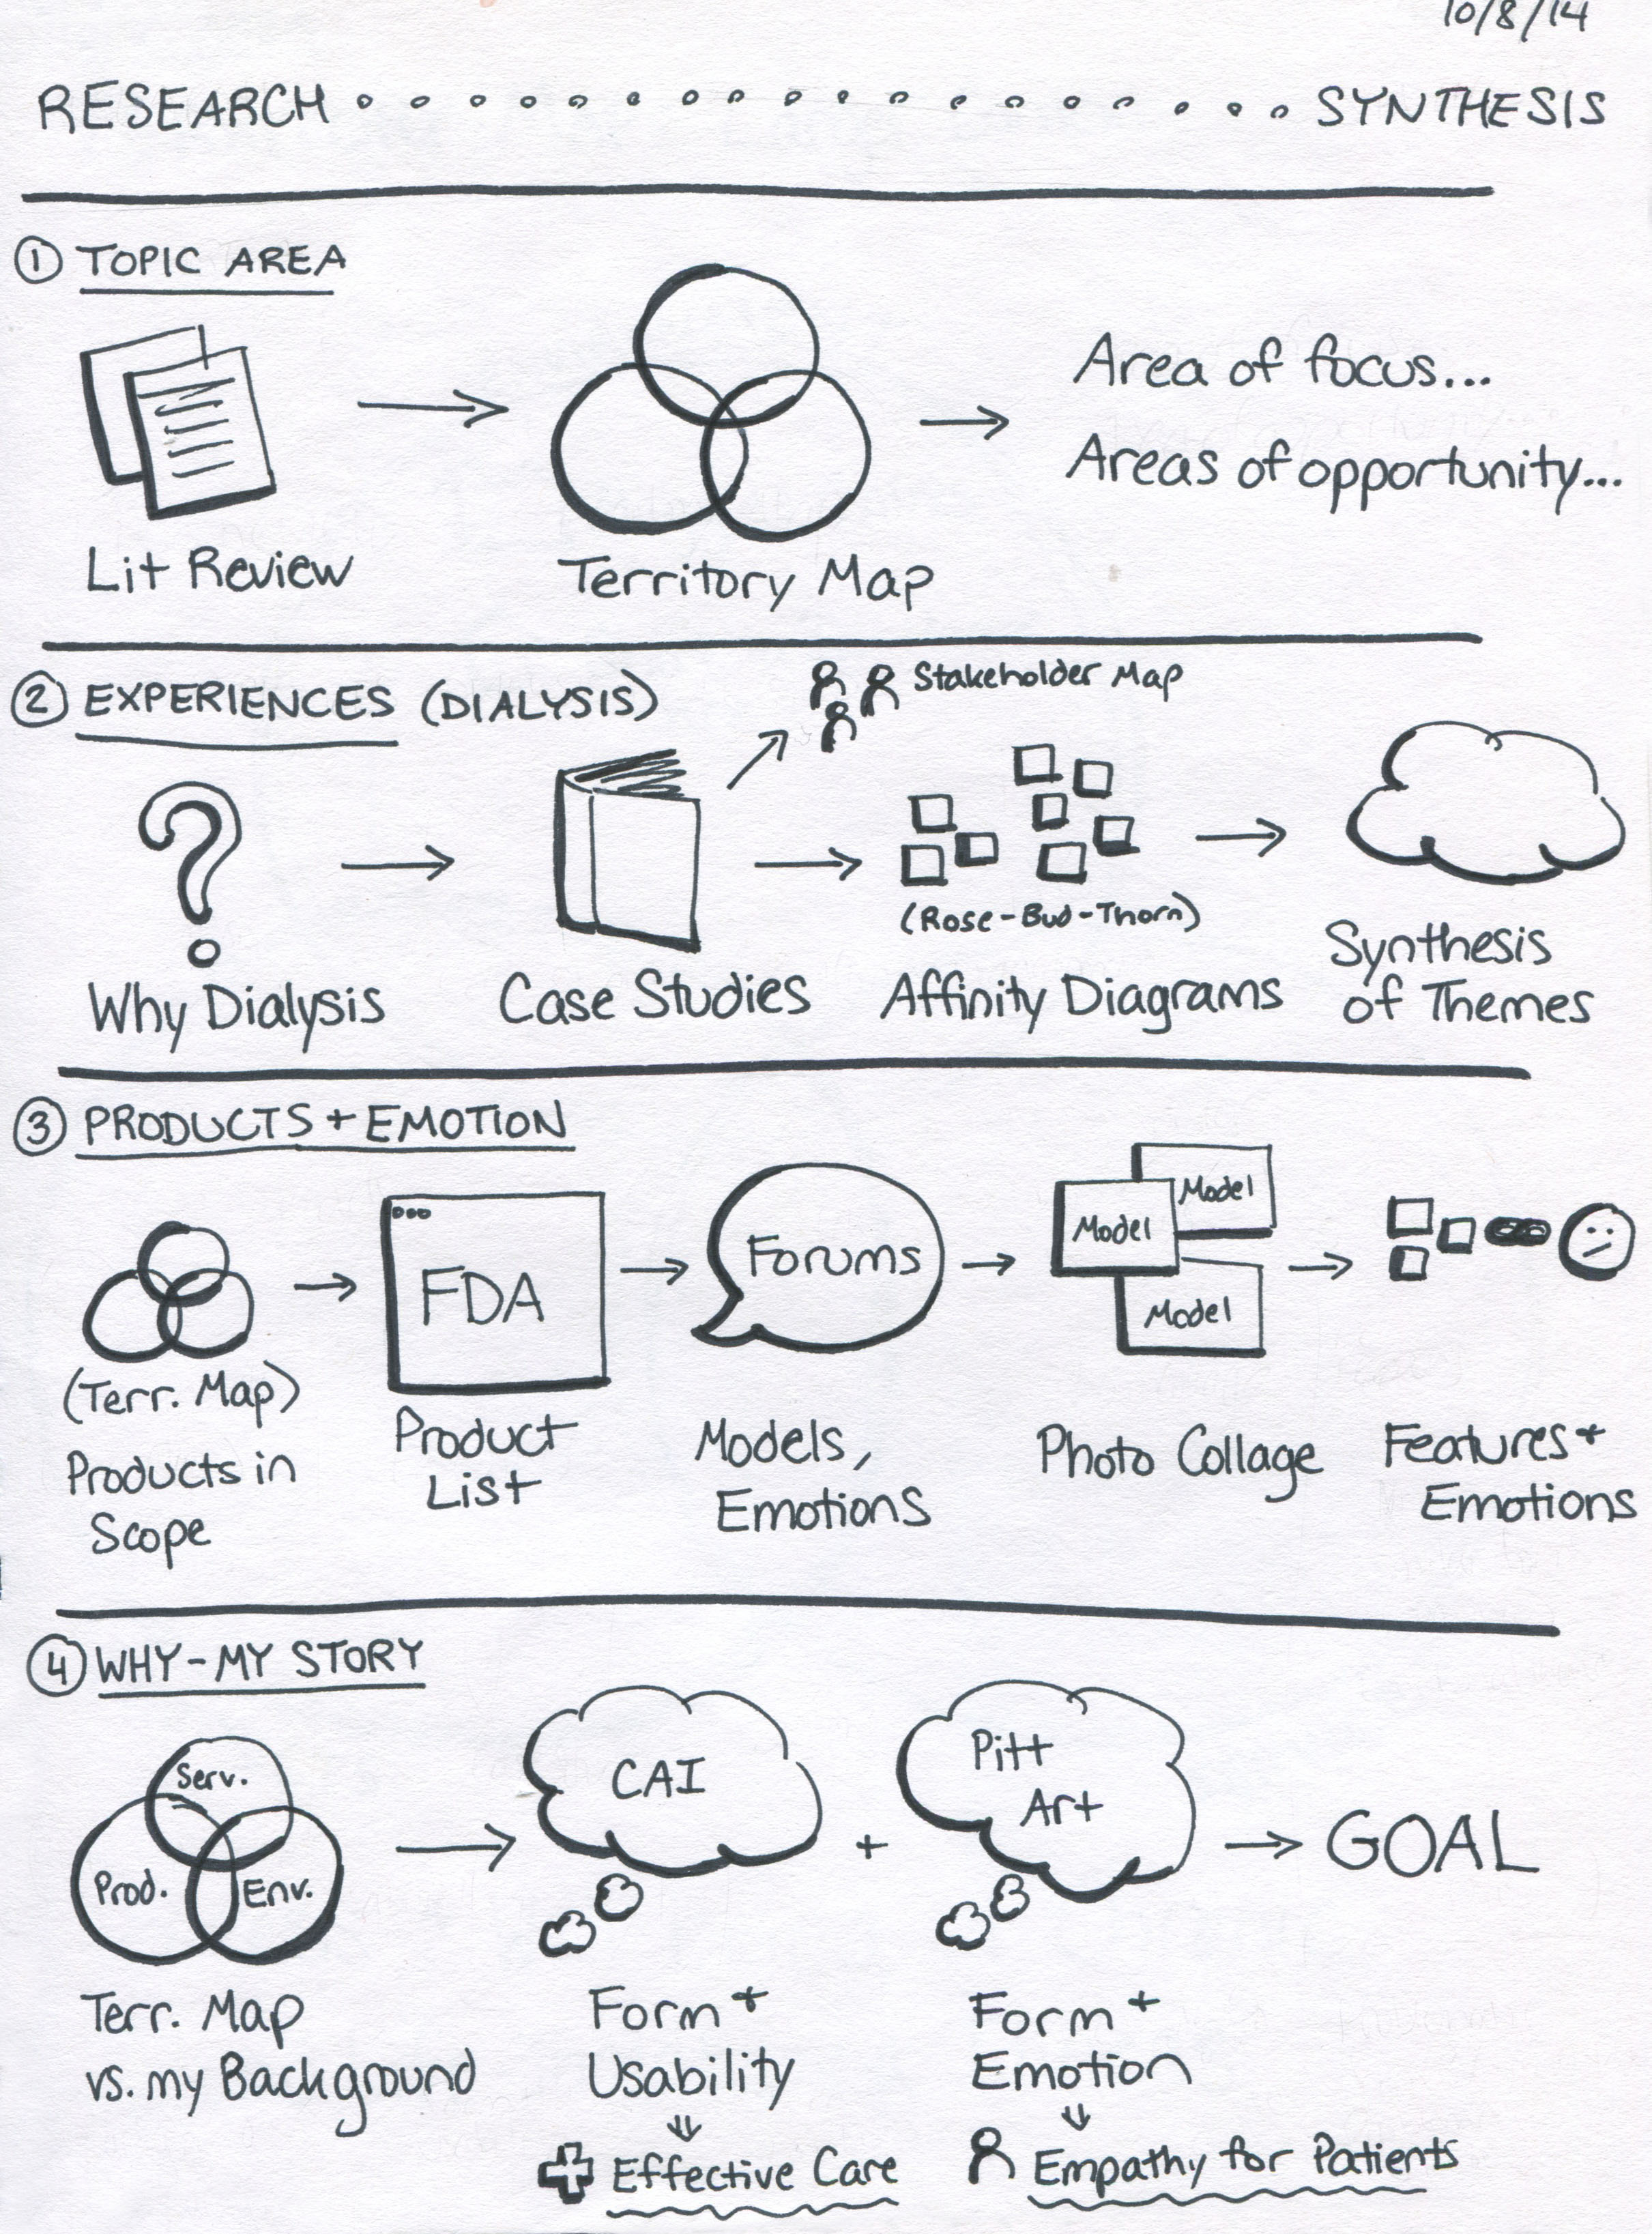 10/8/14
RESEARCH SYNTHESIS
① TOPIC AREA
Area of focus...
Areas of opportunity...
Lit Review
Territory Map
② EXPERIENCES (DIALYSIS)
Stakeholder Map
(Rose-Bud-Thorn)
Why Dialysis
Case Studies
Affinity Diagrams
Synthesis
of Themes
③ PRODUCTS + EMOTION
FDA
Forums
Model
Model
Model
(Terr. Map)
Products in
Scope
Product
List
Models,
Emotions
Photo Collage
Features +
Emotions
④ WHY - MY STORY
Serv.
Prod.
Env.
CAI
+
Pitt
Art
GOAL
Terr. Map
vs. my Background
Form +
Usability
Effective Care
Form +
Emotion
Empathy for Patients